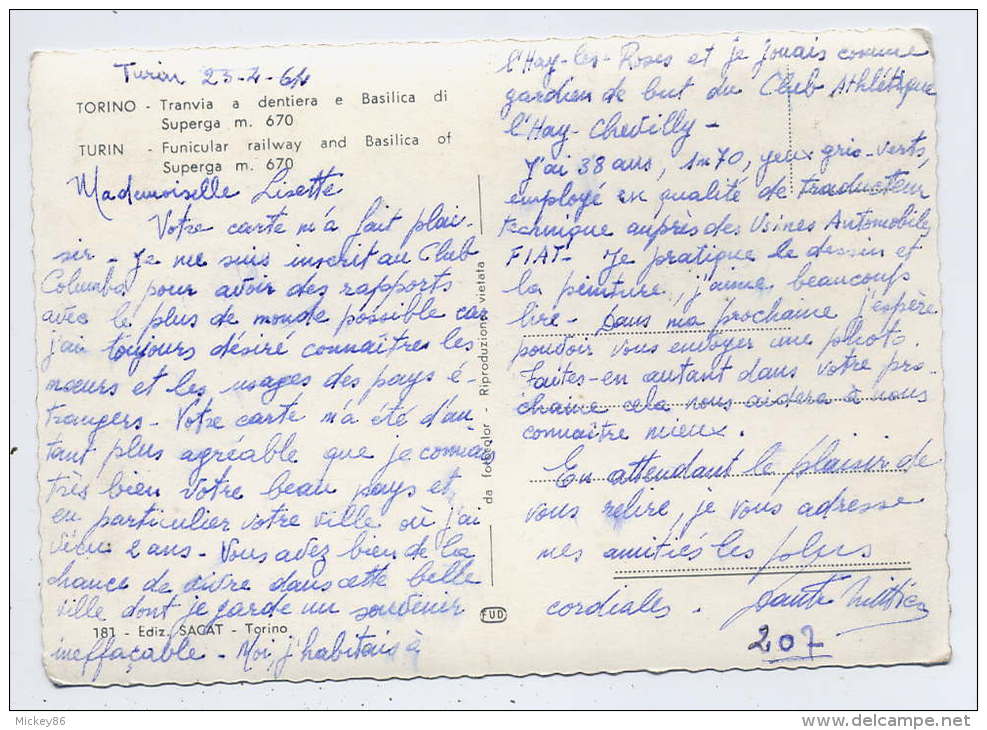 Turin 23-4-64
TORINO - Tranvia a dentiera e Basilica di
Superga m. 670
TURIN - Funicular railway and Basilica of
Superga m. 670
Mademoiselle Lisette
Votre carte m'a fait plai-
sir - Je me suis inscrit au Club
Columba pour avoir des rapports
avec le plus de monde possible car
j'ai toujours désiré connaîtres les
mœurs et les usages des pays é-
trangers - Votre carte m'a été d'au
tant plus agréable que je connais
très bien votre beau pays et
en particulier votre ville où j'ai
vécu 2 ans - Vous avez bien de la
chance de vivre dans cette belle
ville dont je garde un souvenir
181 - Ediz. SACAT - Torino
ineffaçable - Moi j'habitais à
da fotocolor - Riproduzione vietata
FUD
l'Hay-les-Roses et je jouais comme
gardien de but du Club Athlétique
l'Hay-Chevilly -
J'ai 38 ans, 1m70, yeux gris-verts,
employé en qualité de traducteur
technique auprès des Usines Automobiles
FIAT - Je pratique le dessin et
la peinture, j'aime beaucoup
lire - Dans ma prochaine j'espère
pouvoir vous envoyer une photo
Faites-en autant dans votre pro-
chaine cela nous aidera à nous
connaître mieux.
En attendant le plaisir de
vous relire, je vous adresse
mes amitiés les plus
cordiales.
207
Mickey86